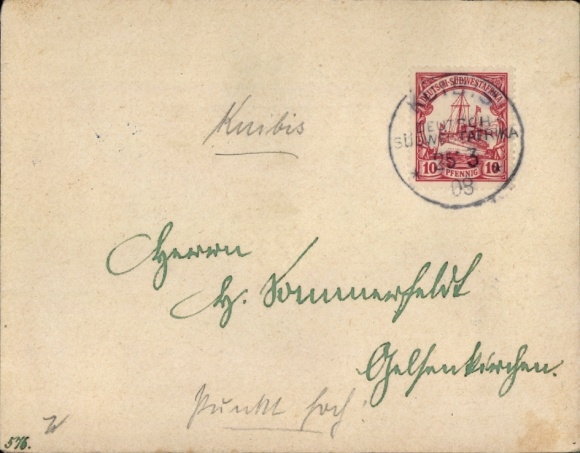 DEUTSCH-SÜDWESTAFRIKA
10 PFENNIG 10
KUIBIS
DEUTSCH-
SÜDWESTAFRIKA
25 3
08
Kuibis
Herrn
H. Sommerfeldt
Gelsenkirchen.
Punkt hoch!
576.